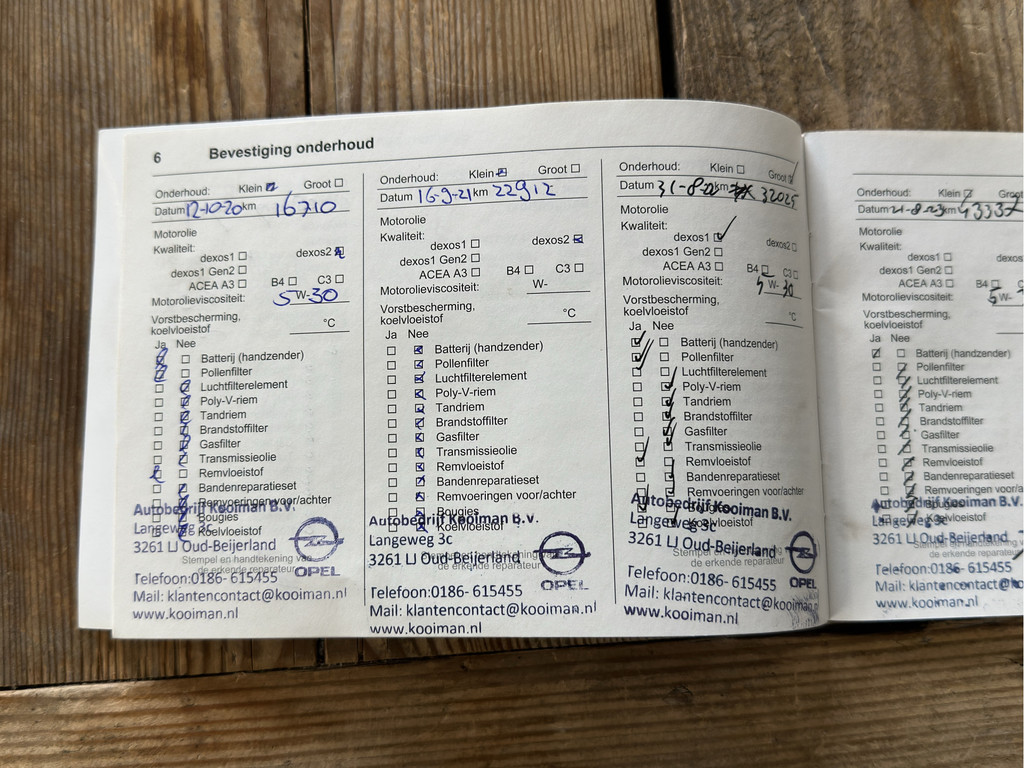 6 Bevestiging onderhoud
Onderhoud: Klein Groot
Datum 12-10-20 km 16710
Motorolie
Kwaliteit:
dexos1 dexos2
dexos1 Gen2
ACEA A3 B4 C3
Motorolieviscositeit: 5 W-30
Vorstbescherming,
koelvloeistof °C
Ja Nee
Batterij (handzender)
Pollenfilter
Luchtfilterelement
Poly-V-riem
Tandriem
Brandstoffilter
Gasfilter
Transmissieolie
Remvloeistof
Bandenreparatieset
Remvoeringen voor/achter
Bougies
Koelvloeistof
Autobedrijf Kooiman B.V.
Langeweg 3c
3261 LJ Oud-Beijerland
Stempel en handtekening van
de erkende reparateur
OPEL
Telefoon:0186- 615455
Mail: klantencontact@kooiman.nl
www.kooiman.nl
Onderhoud: Klein Groot
Datum 16-9-21 km 22912
Motorolie
Kwaliteit:
dexos1 dexos2
dexos1 Gen2
ACEA A3 B4 C3
Motorolieviscositeit: W-
Vorstbescherming,
koelvloeistof °C
Ja Nee
Batterij (handzender)
Pollenfilter
Luchtfilterelement
Poly-V-riem
Tandriem
Brandstoffilter
Gasfilter
Transmissieolie
Remvloeistof
Bandenreparatieset
Remvoeringen voor/achter
Bougies
Koelvloeistof
Autobedrijf Kooiman B.V.
Langeweg 3c
3261 LJ Oud-Beijerland
Stempel en handtekening van
de erkende reparateur
OPEL
Telefoon:0186- 615455
Mail: klantencontact@kooiman.nl
www.kooiman.nl
Onderhoud: Klein Groot
Datum 31-8-22 km 32025
Motorolie
Kwaliteit:
dexos1 dexos2
dexos1 Gen2
ACEA A3 B4 C3
Motorolieviscositeit: 5 W-30
Vorstbescherming,
koelvloeistof °C
Ja Nee
Batterij (handzender)
Pollenfilter
Luchtfilterelement
Poly-V-riem
Tandriem
Brandstoffilter
Gasfilter
Transmissieolie
Remvloeistof
Bandenreparatieset
Remvoeringen voor/achter
Bougies
Koelvloeistof
Autobedrijf Kooiman B.V.
Langeweg 3c
3261 LJ Oud-Beijerland
Stempel en handtekening van
de erkende reparateur
OPEL
Telefoon:0186- 615455
Mail: klantencontact@kooiman
www.kooiman.nl
Onderhoud: Klein Groot
Datum 21-8-23 km 43337
Motorolie
Kwaliteit:
dexos1 dexos
dexos1 Gen2
ACEA A3 B4
Motorolieviscositeit: 5 W-
Vorstbescherming,
koelvloeistof
Ja Nee
Batterij (handzender)
Pollenfilter
Luchtfilterelement
Poly-V-riem
Tandriem
Brandstoffilter
Gasfilter
Transmissieolie
Remvloeistof
Bandenreparatieset
Remvoeringen voor/a
Bougies
Koelvloeistof
Autobedrijf Kooiman B.V.
Langeweg 3c
3261 LJ Oud-Beijerland
Stempel en handtekening
de erkende reparate
Telefoon:0186- 615455
Mail: klantencontact@koo
www.kooiman.nl